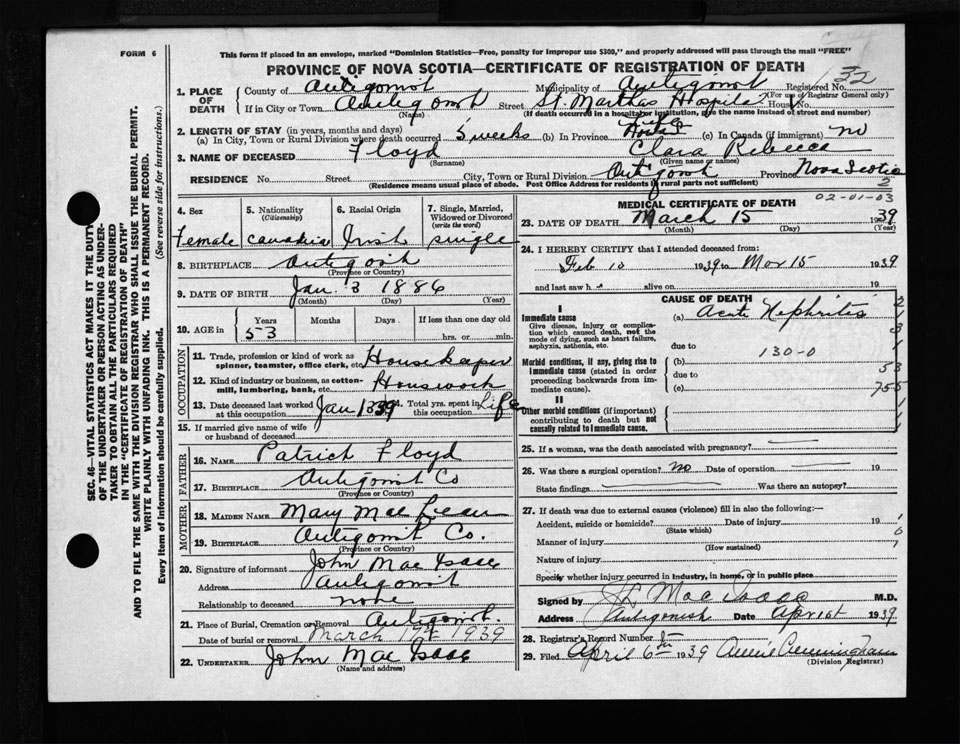 FORM 6
This form if placed in an envelope, marked "Dominion Statistics—Free, penalty for improper use $300," and properly addressed will pass through the mail "FREE"
PROVINCE OF NOVA SCOTIA—CERTIFICATE OF REGISTRATION OF DEATH
32
1. PLACE OF DEATH County of Antigonish Municipality of Antigonish Registered No.
(For use of Registrar General only)
If in City or Town Antigonish Street St. Marthas Hospital House
(Name) (If death occurred in a hospital or institution, give the name instead of street and number)
2. LENGTH OF STAY (in years, months and days)
(a) In City, Town or Rural Division where death occurred 5 weeks (b) In Province (c) In Canada (if immigrant) no
3. NAME OF DECEASED Floyd Clara Rebecca
(Surname) (Given name or names)
RESIDENCE No. Street City, Town or Rural Division Antigonish Province Nova Scotia
(Residence means usual place of abode. Post Office Address for residents in rural parts not sufficient)
4. Sex 5. Nationality (Citizenship) 6. Racial Origin 7. Single, Married, Widowed or Divorced (write the word)
Female Canadian Irish single
8. BIRTHPLACE Antigonish
(Province or Country)
9. DATE OF BIRTH Jan. 3 1886
(Month) (Day) (Year)
10. AGE in Years Months Days If less than one day old
53 hrs. or min.
OCCUPATION
11. Trade, profession or kind of work as spinner, teamster, office clerk, etc. Housekeeper
12. Kind of industry or business, as cotton-mill, lumbering, bank, etc. Housework
13. Date deceased last worked at this occupation Jan 1939 Total yrs. spent in this occupation Life
15. If married give name of wife or husband of deceased
FATHER
16. NAME Patrick Floyd
17. BIRTHPLACE Antigonish Co
(Province or Country)
MOTHER
18. MAIDEN NAME Mary Mac Lean
19. BIRTHPLACE Antigonish Co.
(Province or Country)
20. Signature of informant John Mac Isaac
Address Antigonish
Relationship to deceased none
21. Place of Burial, Cremation or Removal Antigonish.
Date of burial or removal March 17th 1939
22. UNDERTAKER John Mac Isaac
(Name and address)
02-01-03
MEDICAL CERTIFICATE OF DEATH
23. DATE OF DEATH March 15 1939
(Month) (Day) (Year)
24. I HEREBY CERTIFY that I attended deceased from:
Feb 10 1939 to Mar 15 1939
and last saw h alive on 19
CAUSE OF DEATH
Immediate cause (a) Acute Nephritis
Give disease, injury or complication which caused death, not the mode of dying, such as heart failure, asphyxia, asthenia, etc.
due to
130-0
Morbid conditions, if any, giving rise to immediate cause (stated in order proceeding backwards from immediate cause). (b)
due to
(c)
53
755
II
Other morbid conditions (if important) contributing to death but not causally related to immediate cause.
25. If a woman, was the death associated with pregnancy?
26. Was there a surgical operation? no Date of operation 19
State findings Was there an autopsy?
27. If death was due to external causes (violence) fill in also the following:—
Accident, suicide or homicide? Date of injury 19
(State which)
Manner of injury
(How sustained)
Nature of injury
Specify whether injury occurred in industry, in home, or in public place
Signed by Mac Isaac M.D.
Address Antigonish Date Apr 1st 1939
28. Registrar's Record Number
29. Filed April 6th 1939 Annie Cunningham
(Division Registrar)
SEC. 46—VITAL STATISTICS ACT MAKES IT THE DUTY
OF THE UNDERTAKER OR PERSON ACTING AS UNDER-
TAKER TO OBTAIN ALL THE PARTICULARS REQUIRED
IN THE "CERTIFICATE OF REGISTRATION OF DEATH"
AND TO FILE THE SAME WITH THE DIVISION REGISTRAR WHO SHALL ISSUE THE BURIAL PERMIT.
WRITE PLAINLY WITH UNFADING INK. THIS IS A PERMANENT RECORD.
Every item of information should be carefully supplied. (See reverse side for instructions.)